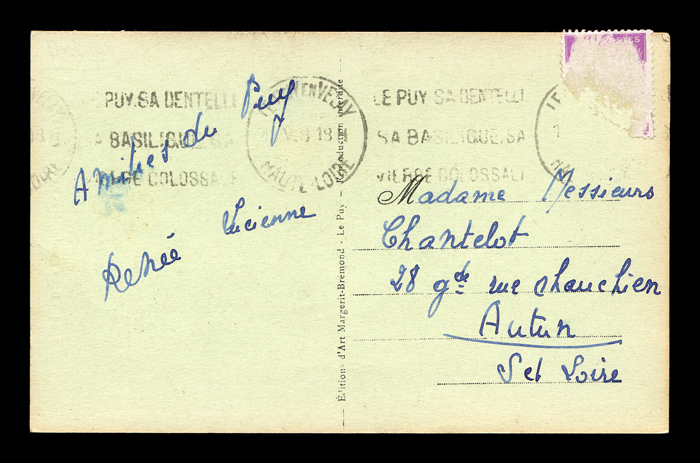 LE PUY EN VELAY
HAUTE-LOIRE
PUY.SA DENTELLE
BASILIQUE.SA
VIERGE COLOSSALE
LE PUY SA DENTELLE
SA BASILIQUE.SA
VIERGE COLOSSALE
Amitiés du Puy
Lucienne
Renée
Éditions d'Art Margerit-Brémond - Le Puy - Reproduction interdite
Madame Messieurs
Chantelot
28 gde rue chauchien
Autun
S et Loire